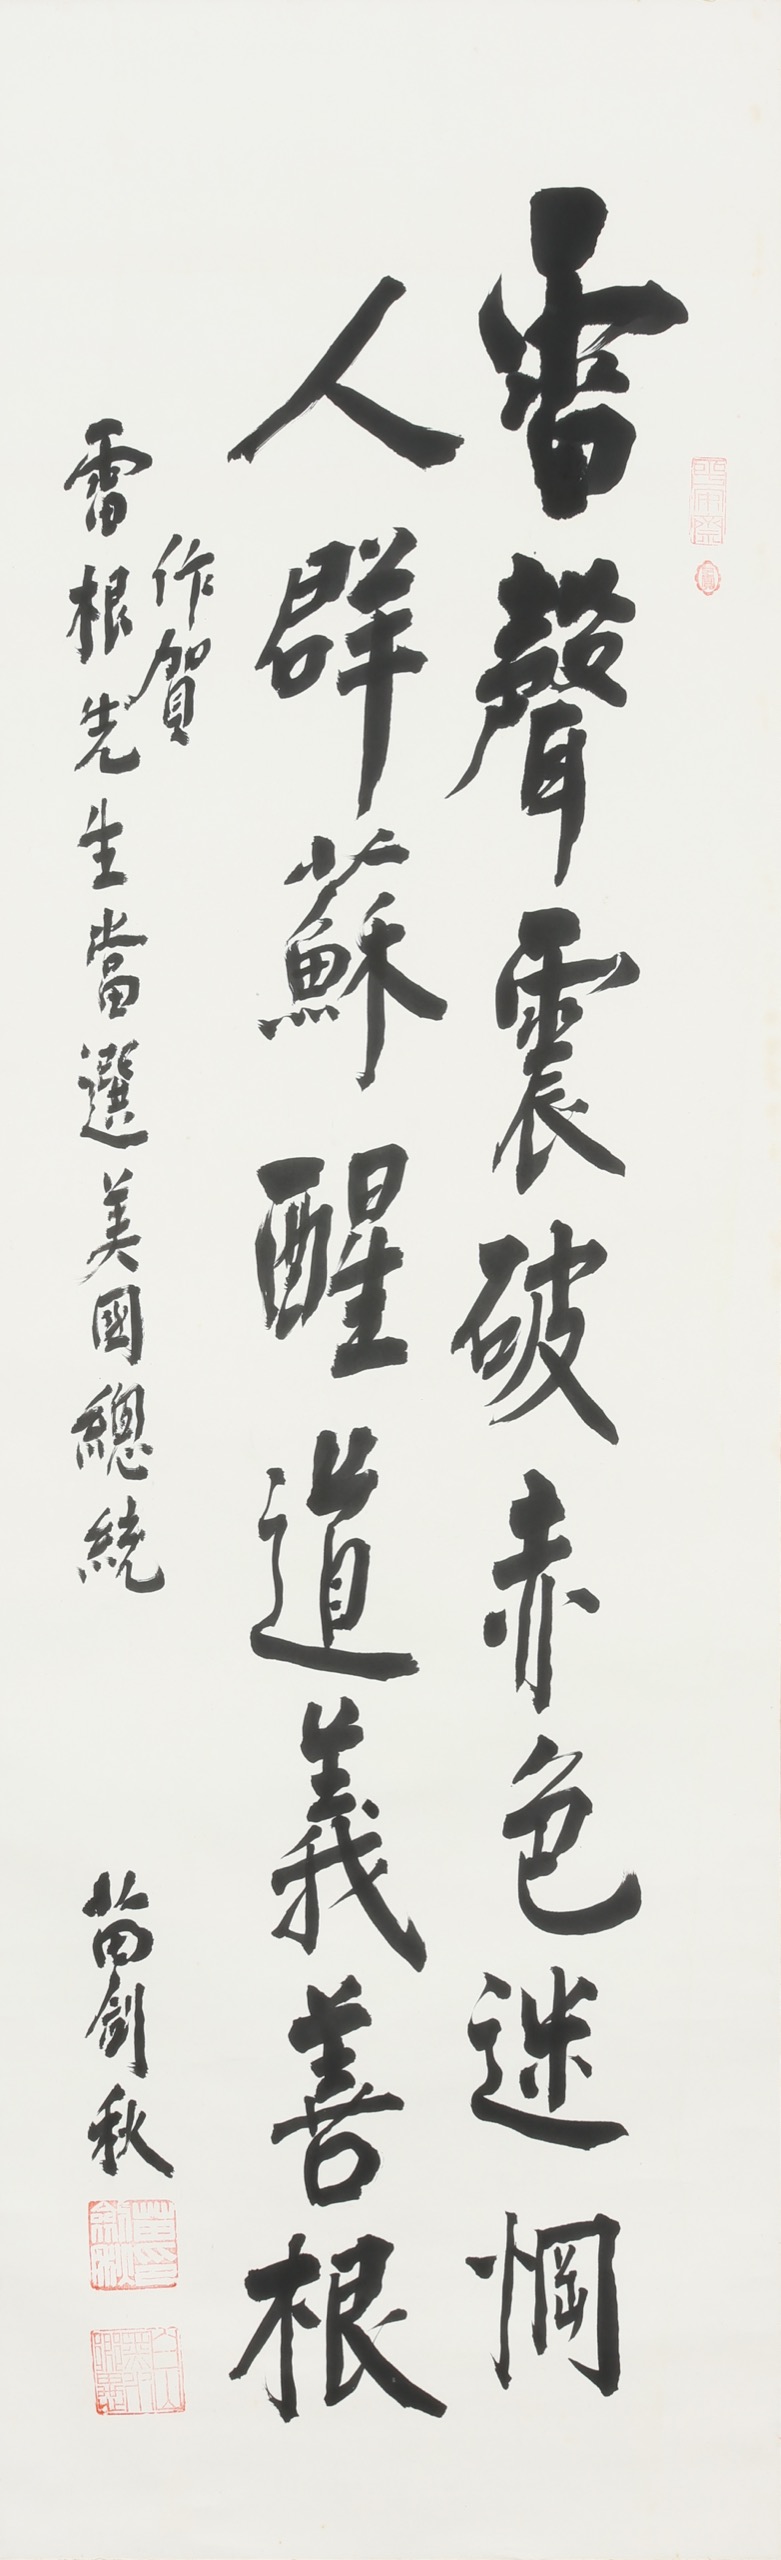 雷聲震破赤色迷惘
人群蘇醒道義善根
作賀
雷根先生當選美國總統
苗劍秋